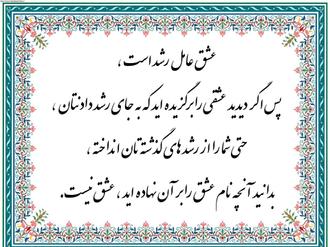 عشق عامل رشد است ،
پس اگر دیدید عشقی را برگزیده اید که به جای رشد دادنتان ،
حتی شما را از رشد های گذشته تان انداخته ،
بدانید آنچه نام عشق را بر آن نهاده اید ، عشق نیست.